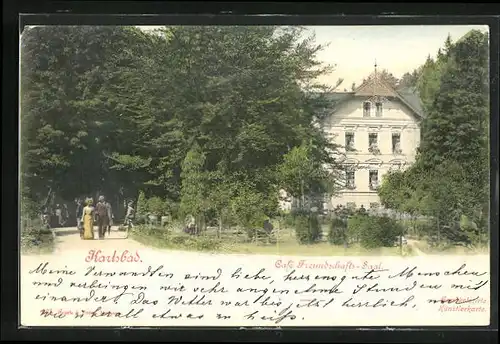 Karlsbad.
Café Freundschafts-Saal.
Meine Verwandten sind liebe, herzensgute Menschen
und verbringen wir sehr angenehme Stunden mit
einander. Das Wetter war bis jetzt herrlich, nur
wie überall etwas zu heiß.
Künstlerkarte.